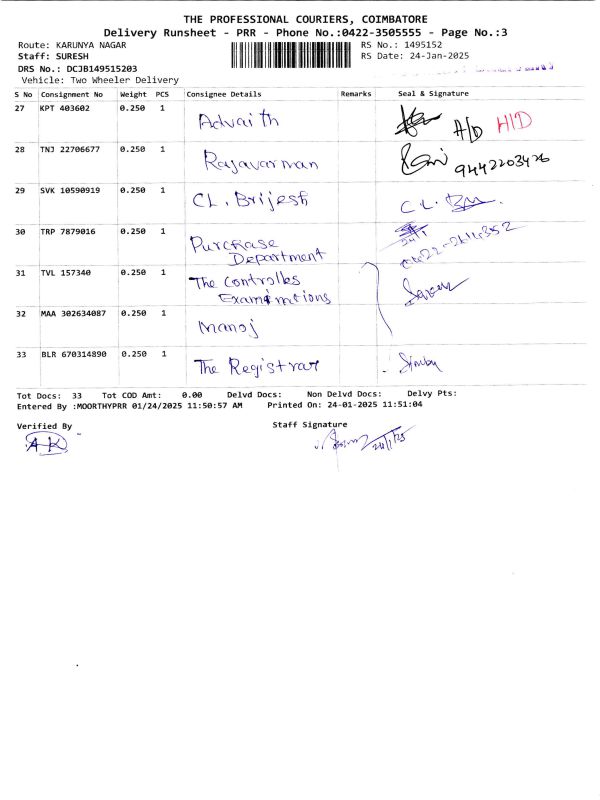 THE PROFESSIONAL COURIERS, COIMBATORE
Delivery Runsheet - PRR - Phone No.:0422-3505555 - Page No.:3
Route: KARUNYA NAGAR RS No.: 1495152
Staff: SURESH RS Date: 24-Jan-2025
DRS No.: DCJB149515203
Vehicle: Two Wheeler Delivery
S No Consignment No Weight PCS Consignee Details Remarks Seal & Signature
27 KPT 403602 0.250 1 Advaith A/D H/D
28 TNJ 22706677 0.250 1 Rajavarman 9442203426
29 SVK 10590919 0.250 1 CL. Brijesh C L.
30 TRP 7879016 0.250 1 Purchase
Department
31 TVL 157340 0.250 1 The Controlles
Examinations
32 MAA 302634087 0.250 1 Manoj
33 BLR 670314890 0.250 1 The Registrar
Tot Docs: 33 Tot COD Amt: 0.00 Delvd Docs: Non Delvd Docs: Delvy Pts:
Entered By :MOORTHYPRR 01/24/2025 11:50:57 AM Printed On: 24-01-2025 11:51:04
Verified By Staff Signature
AK 24/1/25